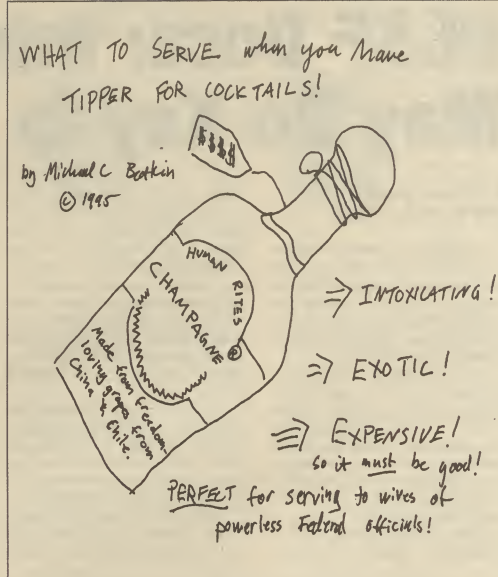 WHAT TO SERVE when you have
TIPPER FOR COCKTAILS!
by Michael C Botkin
© 1995
$$$$
HUMAN RITES
CHAMPAGNE ®
Made from freedom-
loving grapes from
China & Chile.
⇒ INTOXICATING!
⇒ EXOTIC!
⇒ EXPENSIVE!
so it must be good!
PERFECT for serving to wives of
powerless Federal officials!